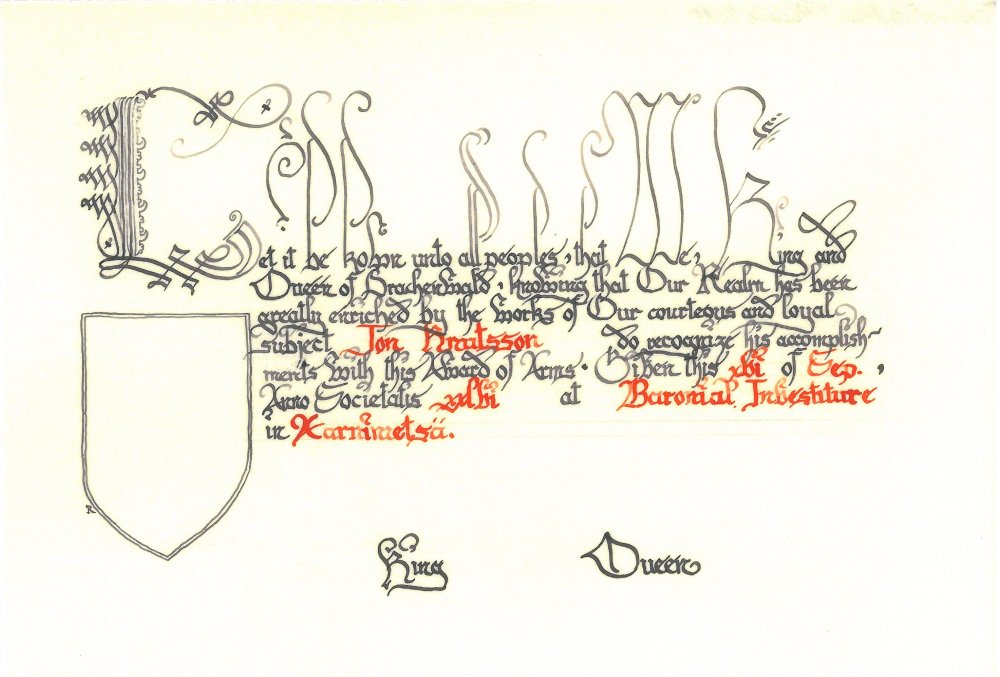 Let it be known unto all peoples, that We, King and
Queen of Drachenwald, knowing that Our Realm has been
greatly enriched by the works of Our courteous and loyal
subject Jon Knutsson do recognize his accomplish-
ments with this Award of Arms. Given this xvi of Sep.,
Anno Societatis xlvi at Baronial Investiture
in Karnimetsä.
King Queen
R